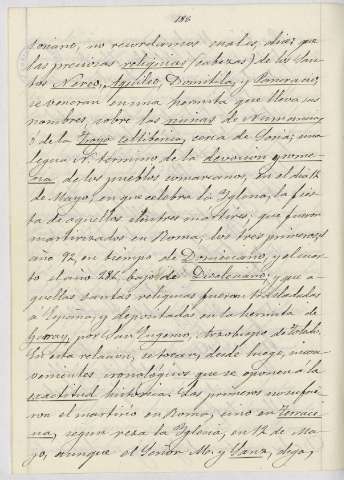 186
toriano, no recordamos cual es, dice; que
las preciosas reliquias (cabezas) de los San-
tos Nereo, Aquileo, Domitila, y Pancracio,
se veneran en una hermita que lleva sus
nombres, sobre las ruinas de Numancia
ó de la Troya celtibérica, cerca de Soria; una
legua N. término de la devocion y rome-
ria de los pueblos comarcanos, en el dia 12
de Mayo, en que celebra la Yglesia, la fies-
ta de aquellos ilustres mártires; que fueron
martirizados en Roma; los tres primeros, el
año 92, en tiempo de Domiciano, y el cuar-
to el año 284, bajo de Diocleciano, y que a-
quellas santas reliquias fueron trasladadas
a España, y depositadas en la hermita de
Garray, por San Eugenio, Arzobispo de Toledo.
En esta relacion, se tocan, desde luego, incon-
venientes cronológicos que se oponen a la
exactitud historica. Los primeros no sufrie-
ron el martirio en Roma, sino en Terraci-
na, segun reza la Yglesia, en 12 de Ma-
yo, aunque el Señor Mo. y Sanz, diga,